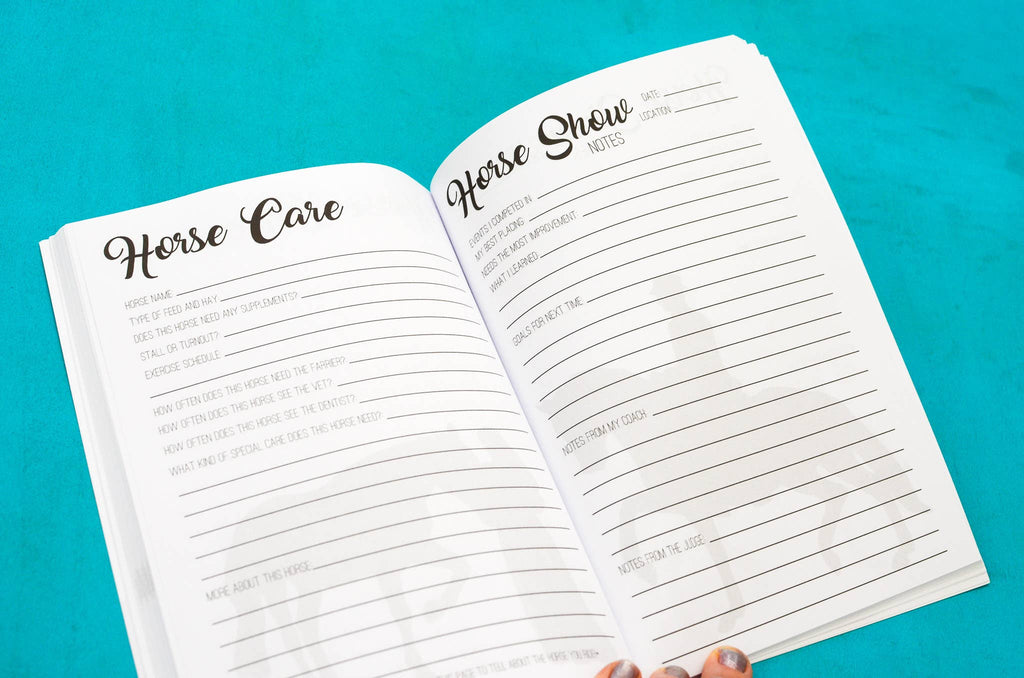 Horse Care
HORSE NAME:
TYPE OF FEED AND HAY:
DOES THIS HORSE NEED ANY SUPPLEMENTS?:
STALL OR TURNOUT?:
EXERCISE SCHEDULE:
HOW OFTEN DOES THIS HORSE NEED THE FARRIER?:
HOW OFTEN DOES THIS HORSE SEE THE VET?:
HOW OFTEN DOES THIS HORSE SEE THE DENTIST?:
WHAT KIND OF SPECIAL CARE DOES THIS HORSE NEED?:
MORE ABOUT THIS HORSE:
PAGE TO TELL ABOUT THE HORSE YOU RIDE*
Horse Show
NOTES
DATE:
LOCATION:
EVENTS I COMPETED IN:
MY BEST PLACING:
NEEDS THE MOST IMPROVEMENT:
WHAT I LEARNED:
GOALS FOR NEXT TIME:
NOTES FROM MY COACH:
NOTES FROM THE JUDGE: